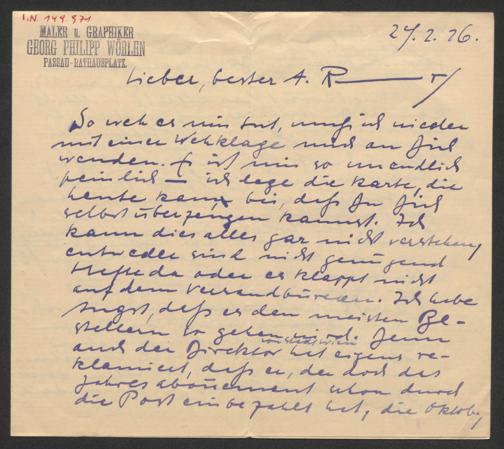 I.N. 149.971
MALER u. GRAPHIKER
GEORG PHILIPP WÖRLEN
PASSAU-RATHAUSPLATZ.
27.2.26.
Lieber, bester A. R——r,
So weh es mir tut, muß ich wieder
mit einer Wehklage mich an Dich
wenden. Es ist mir so unendlich
peinlich — ich lege die Karte, die
heute kam, bei, daß Du Dich
selbst überzeugen kannst. Ich
kann dies alles gar nicht verstehen,
entweder sind nicht genügend
Hefte da oder es klappt nicht
auf dem Versandbüro. Ich habe
Angst, daß es den meisten Be-
stellern so gehen wird. Denn
auch der Direktor hat eigens re-
klamiert, daß er, der doch das
Jahresabonnement schon durch
die Post einbezahlt hat, die Oktob.